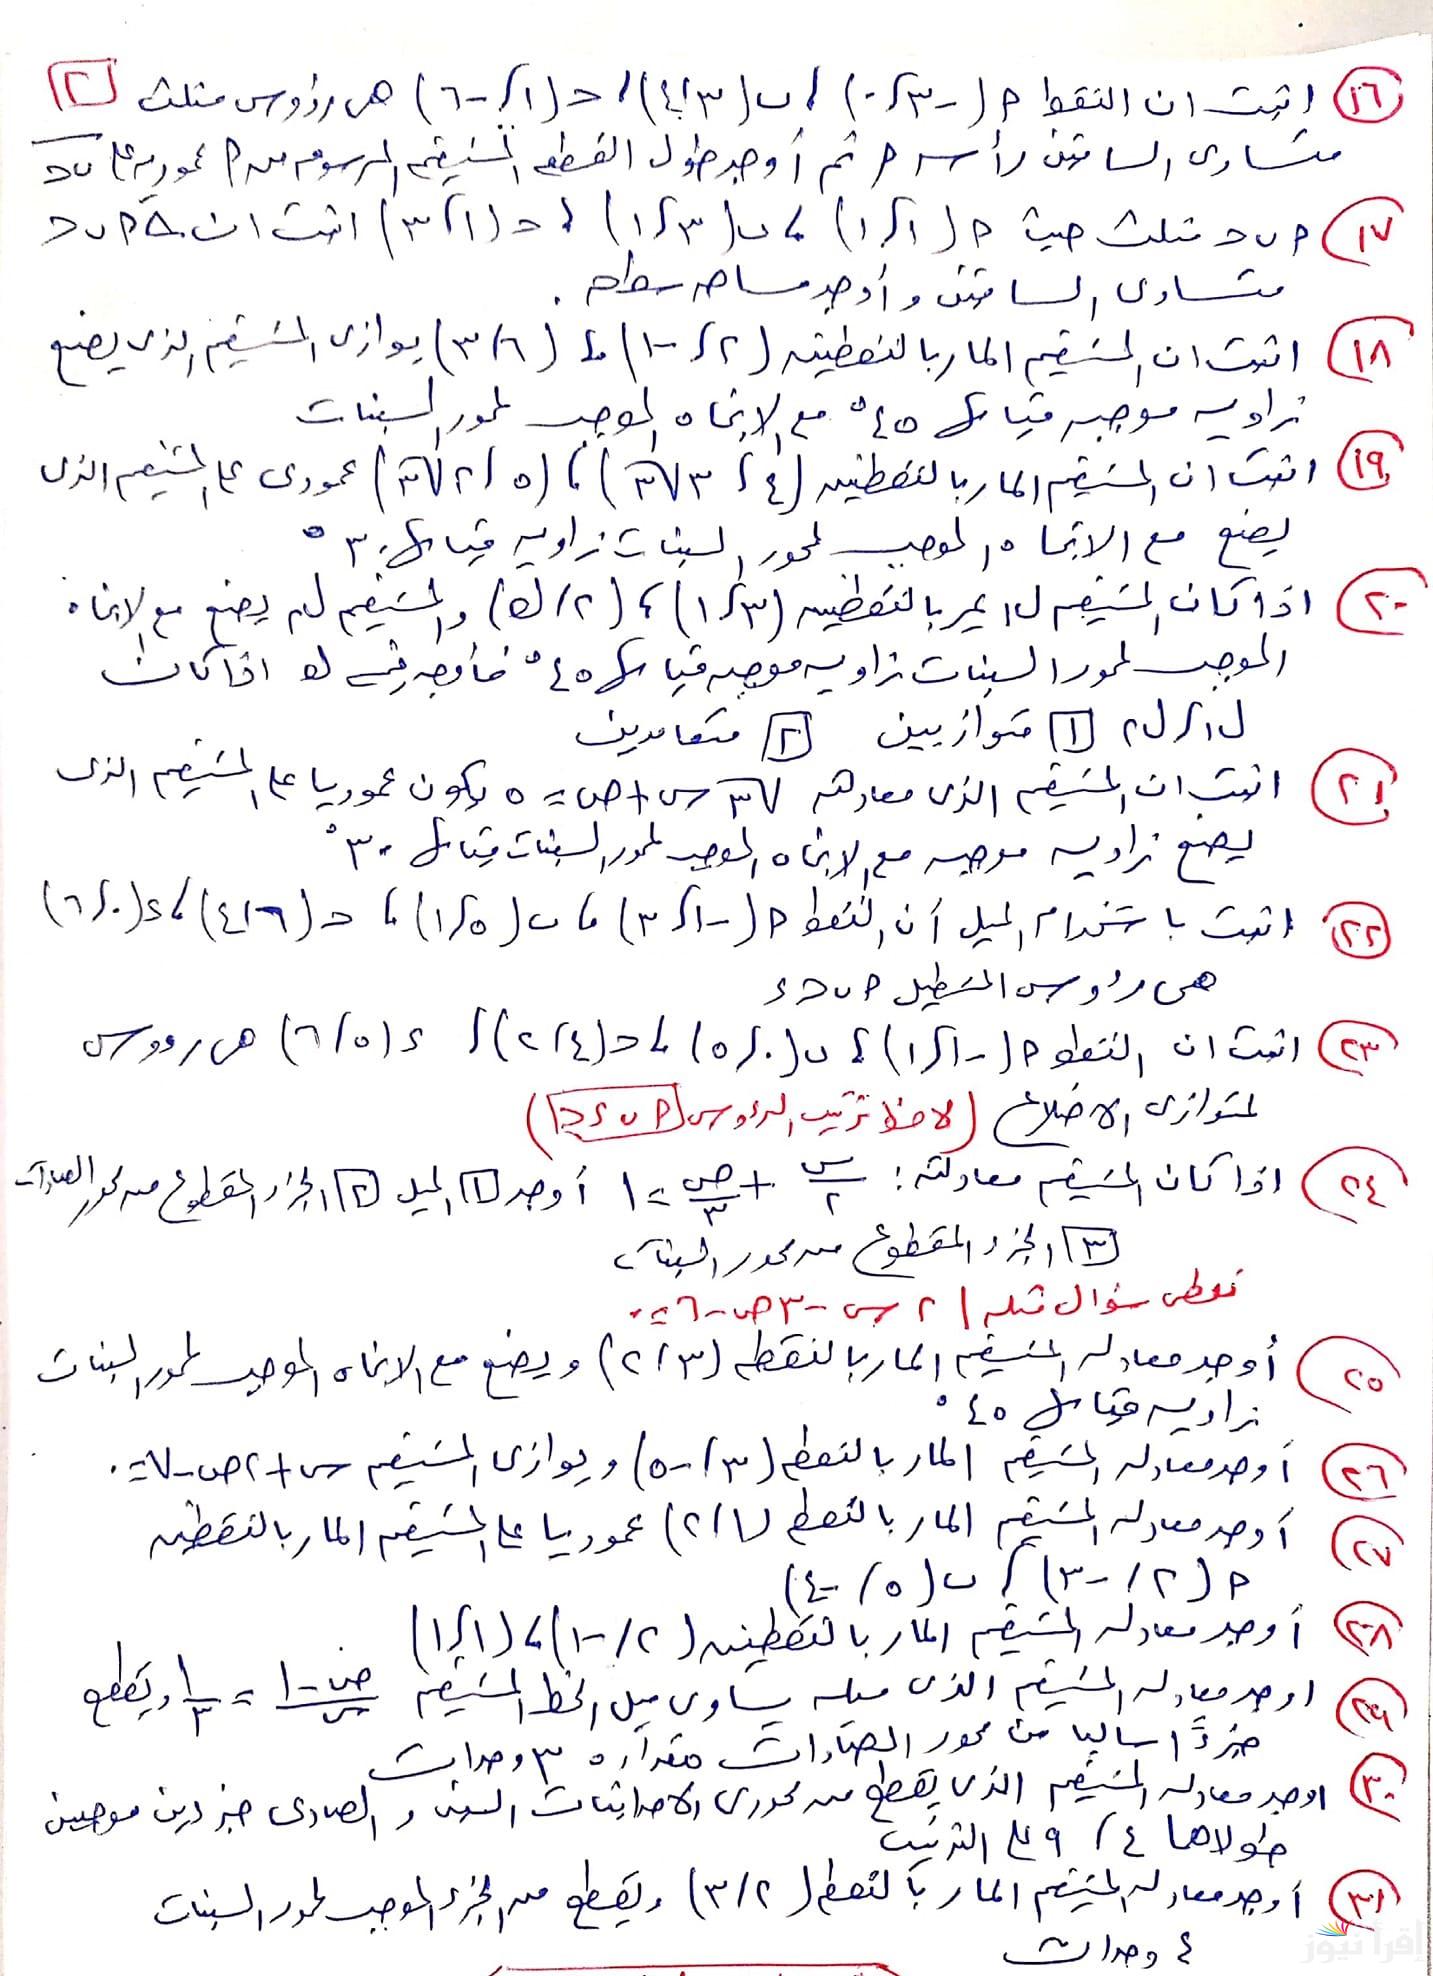 ٢
١٦ اثبت ان النقط P (-٣ ، ٠) ، ب (٣ ، ٤) ، ح (١ ، -٦) هى رؤوس مثلث
متساوى الساقين رأسه P ثم أوجد طول القطعه المستقيمه المرسومه من P عموديه على ب ح
١٧ P ب ح مثلث حيث P (١ ، ١) ، ب (٣ ، ١) ، ح (١ ، ٣) اثبت ان △ P ب ح
متساوى الساقين و أوجد مساحه سطحه .
١٨ اثبت ان المستقيم المار بالنقطتين (٢ ، -١) ، (٦ ، ٣) يوازى المستقيم الذى يصنع
زاويه موجبه قياسها ٤٥° مع الاتجاه الموجب لمحور السينات
١٩ اثبت ان المستقيم المار بالنقطتين (٤ ، ٣√٣) ، (٥ ، ٢√٣) عمودى على المستقيم الذى
يصنع مع الاتجاه الموجب لمحور السينات زاويه قياسها ٣٠°
٢٠ اذا كان المستقيم ل١ يمر بالنقطتين (٣ ، ١) ، (٢ ، ك) والمستقيم ل٢ يصنع مع الاتجاه
الموجب لمحور السينات زاويه موجبه قياسها ٤٥° فأوجد قيمة ك اذا كان
ل١ ، ل٢ ١ متوازيين ٢ متعامدين
٢١ اثبت ان المستقيم الذى معادلته √٣ س + ص = ٥ يكون عموديا على المستقيم الذى
يصنع زاويه موجبه مع الاتجاه الموجب لمحور السينات قياسها ٣٠°
٢٢ اثبت باستخدام الميل أن النقط P (-١ ، ٣) ، ب (٥ ، ١) ، ح (٦ ، ٤) ، ء (٠ ، ٦)
هى رؤوس المستطيل P ب ح ء
٢٣ اثبت ان النقط P (-١ ، ١) ، ب (٠ ، ٥) ، ح (٤ ، ٢) ، ء (٥ ، ٦) هى رووس
لمتوازى الاضلاع (لاحظ ترتيب الرءوس P ب ء ح)
٢٤ اذا كان المستقيم معادلته : س/٢ + ص/٣ = ١ أوجد ١ الميل ٢ الجزء المقطوع من محور الصادات
٣ الجزء المقطوع من محور السينات
نعطى سؤال شبه / ٢ س - ٣ ص - ٦ = ٠
٢٥ أوجد معادله المستقيم المار بالنقطه (٣ ، ٢) ويصنع مع الاتجاه الموجب لمحور السينات
زاويه قياسها ٤٥°
٢٦ أوجد معادله المستقيم المار بالنقطه (٣ ، -٥) ويوازى المستقيم س + ٢ ص - ٧ = ٠
٢٧ أوجد معادله المستقيم المار بالنقطه (١ ، ٢) عموديا على المستقيم المار بالنقطتين
P (٢ ، -٣) ، ب (٥ ، -٤)
٢٨ أوجد معادله المستقيم المار بالنقطتين (٢ ، -١) ، (١ ، ١)
٢٩ اوجد معادله المستقيم الذى ميله يساوى ميل الخط المستقيم ص-١/س = ١/٣ ويقطع
جزءاً سالبا من محور الصادات مقداره ٣ وحدات
٣٠ اوجد معادله المستقيم الذى يقطع من محورى الاحداثيات السينى و الصادى جزءين موجبين
طولاهما ٤ ، ٩ على الترتيب
٣١ أوجد معادله المستقيم المار بالنقطه (٢ ، ٣) ويقطع من الجزء الموجب لمحور السينات
٤ وحدات
إقرأ نيوز